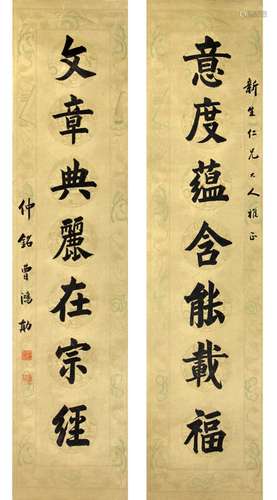 新生仁兄大人雅正
意度蕴含能載福
文章典麗在宗經
仲銘曹鴻勛